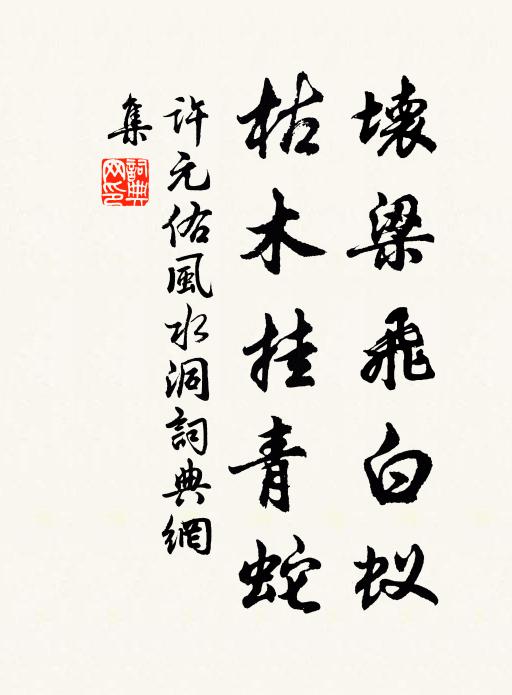 壊梁飛白蚁
枯木挂青蛇
許元佑風水洞詞典網
集
詞典
网印